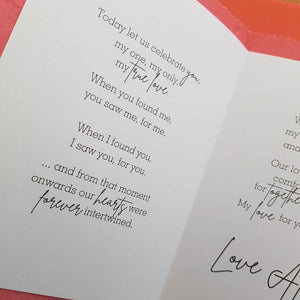 Today let us celebrate you,
my one, my only,
my true love
When you found me,
you saw me, for me.
When I found you,
I saw you, for you.
... and from that moment
onwards our hearts were
forever intertwined.
W
my
and
Our lo
com
for together
My love for yo
Love A